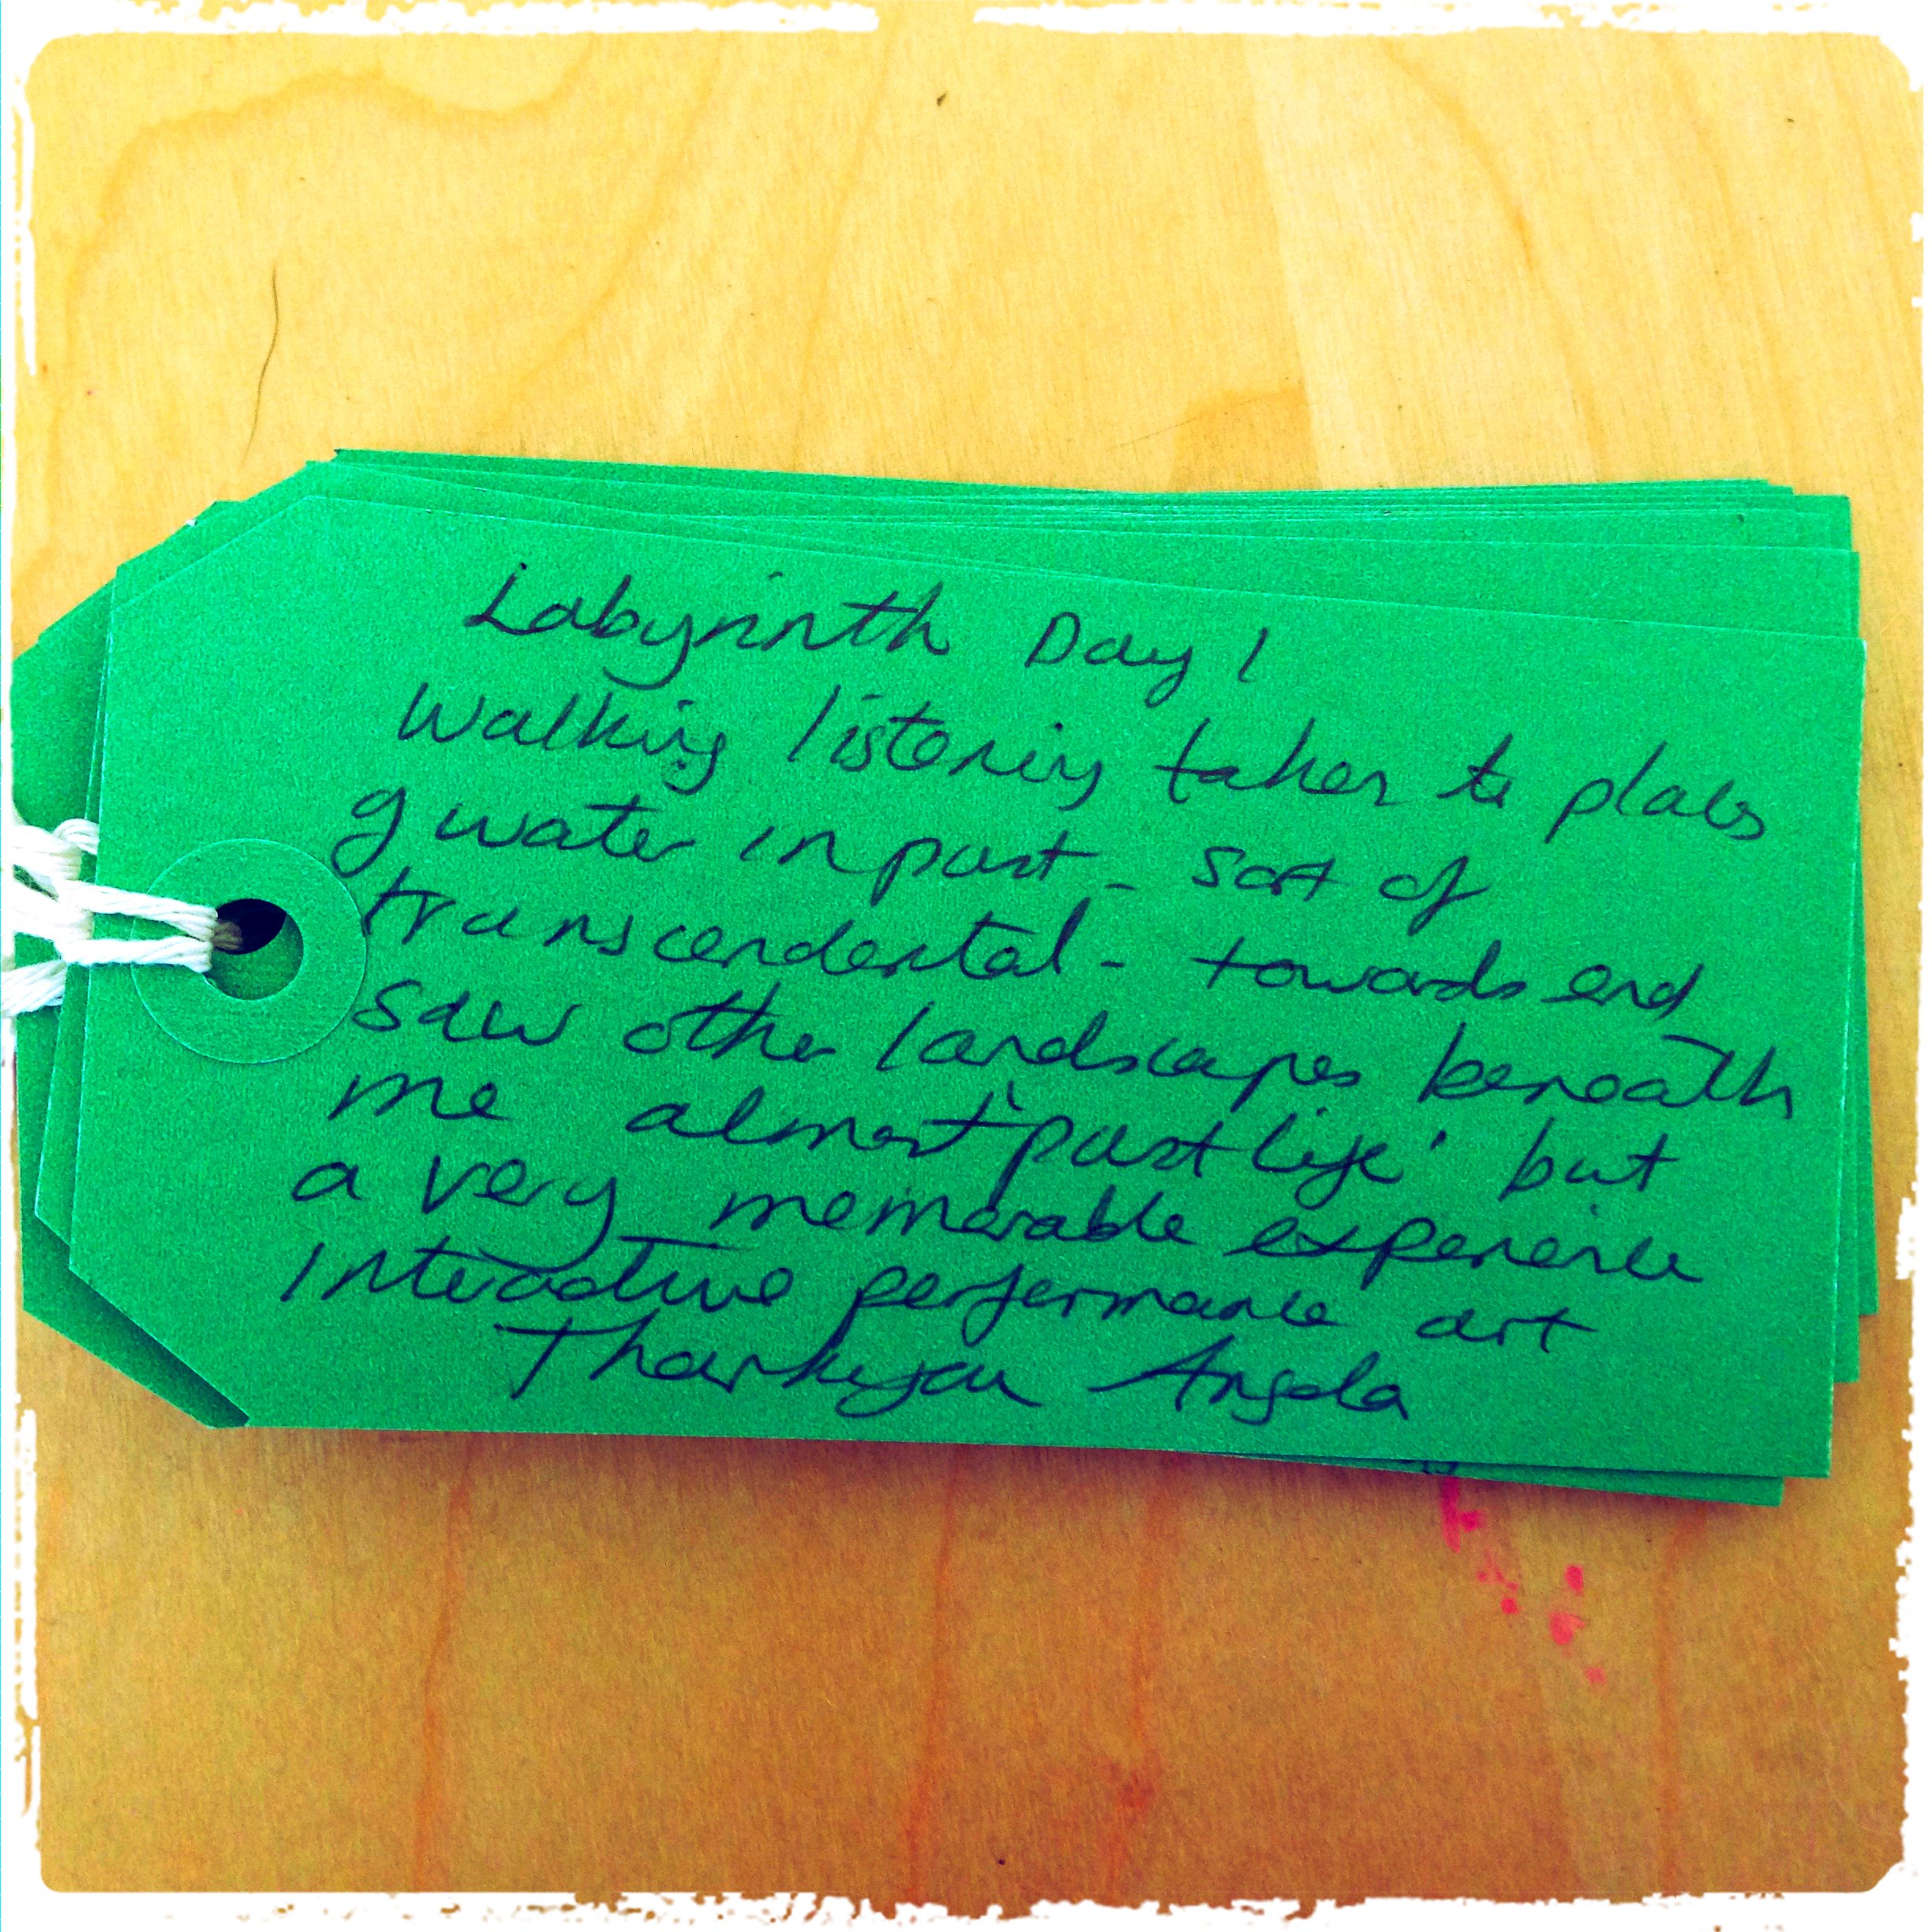 Labyrinth Day 1
Walking listening taken to places
of water in past - sort of
transcendental - towards end
saw other landscapes beneath
me almost 'past life' but
a very memorable experience
Interactive performance art
Thankyou Angela